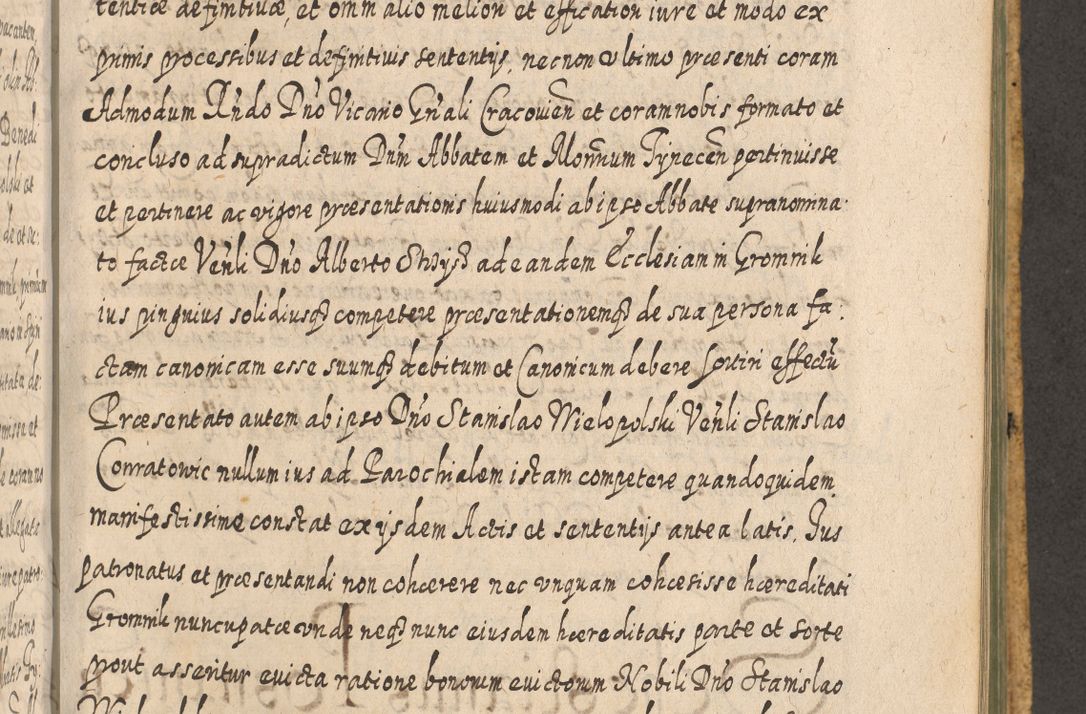 tentiæ definitiuæ, et omni alio meliori et efficatiori iure et modo ex
primis processibus et definitiuis sententijs, necnon vltimo præsenti coram
Admodum Rndo Dno Vicario Gnali Cracouien et coram nobis formato et
concluso ad supradictum Dnm Abbatem et Monrum Tynecen pertinuisse
et pertinere ac vigore præsentationis huiusmodi ab ipso Abbate supranomina
to factæ Venli Dno Alberto ad eandem Ecclesiam in Gromnik
ius pinguius solidiusq competere præsentationemq de sua persona fa:
ctam canonicam esse suumq debitum et Canonicum debere sortiri effectu
Præsentato autem ab ipso Dno Stanislao Wielopolski Venli Stanislao
Conratowic nullum ius ad Parochialem istam competere quandoquidem
manifestissime constat ex ijsdem Actis et sententijs antea latis, Jus
patronatus et præsentandi non cohærere nec vnquam cohæsisse hæreditati
Gromnik nuncupatæ vnde neq nunc eiusdem hæreditatis parte et sorte
prout asseritur euicta ratione bonorum euictorum Nobili Dno Stanislao